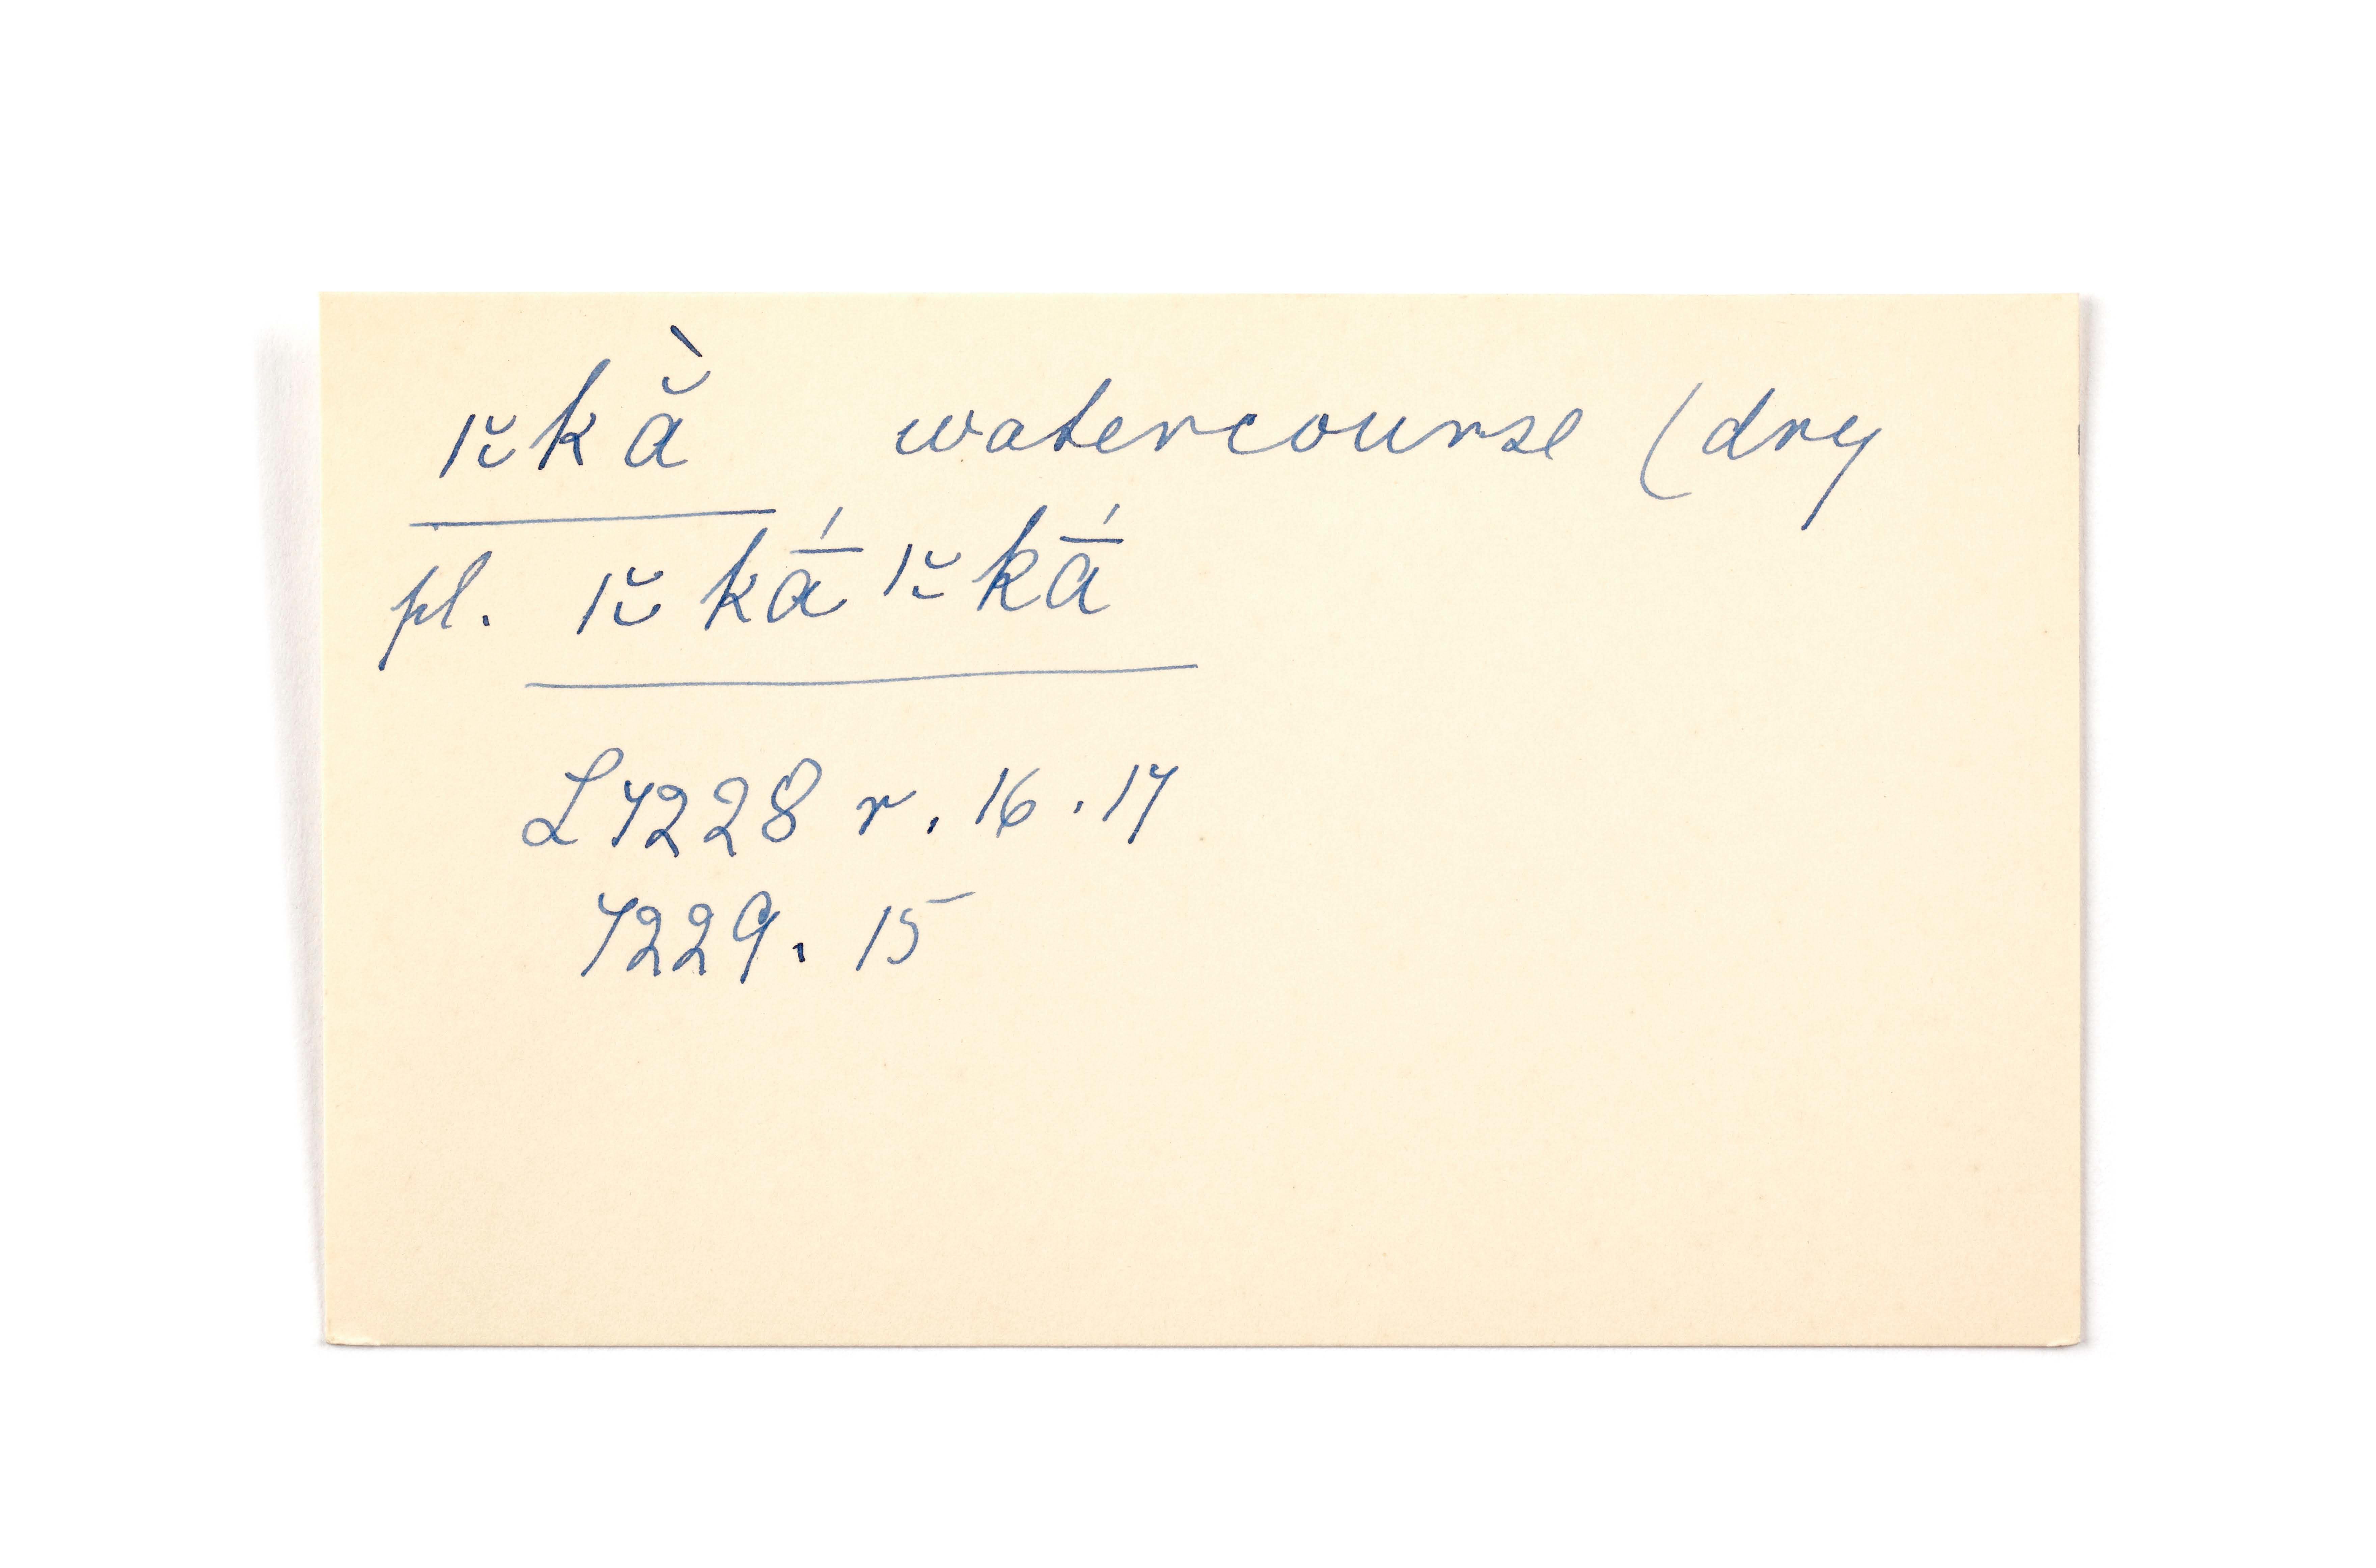 |ŭkằ watercourse (dry
pl. |ŭkā́ |ŭkā́
L 7228 r. 16.17
7229. 15